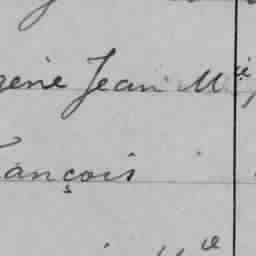 gène Jean Mie
rançois